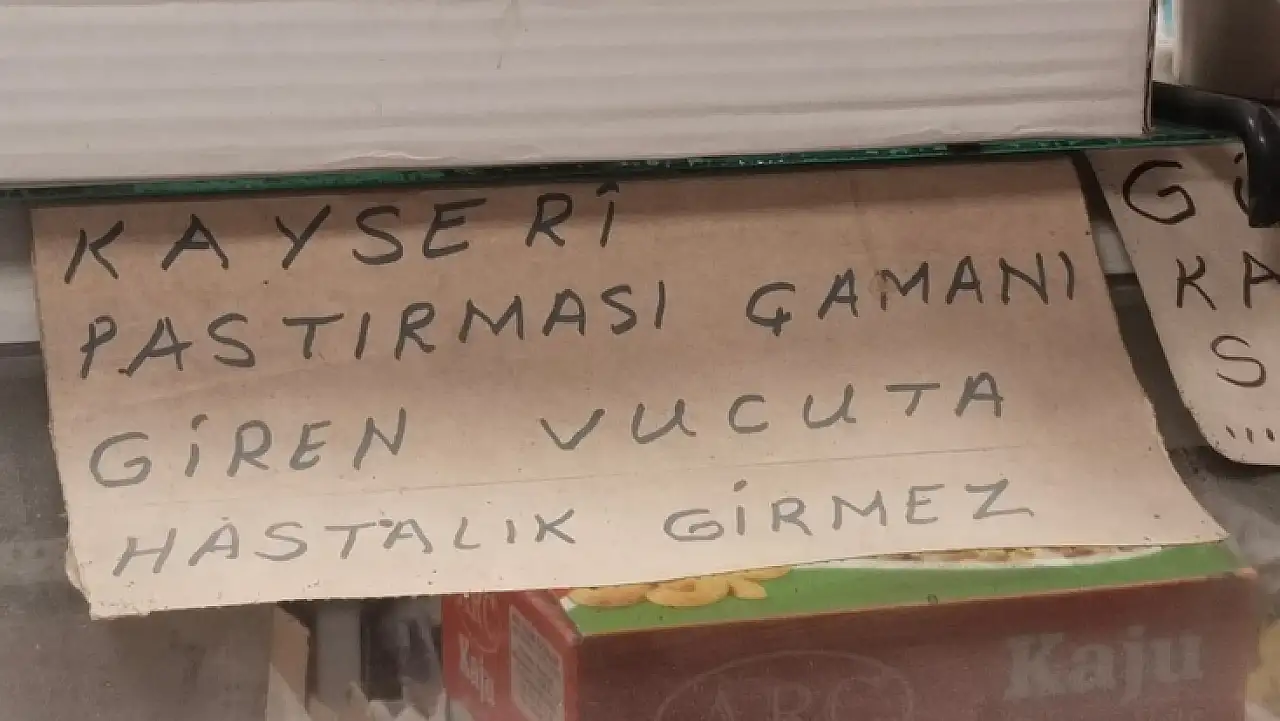 KAYSERİ
PASTIRMASI ÇAMANI
GİREN VUCUTA
HASTALIK GİRMEZ
KA
S
Kaju
ARO
Kaju